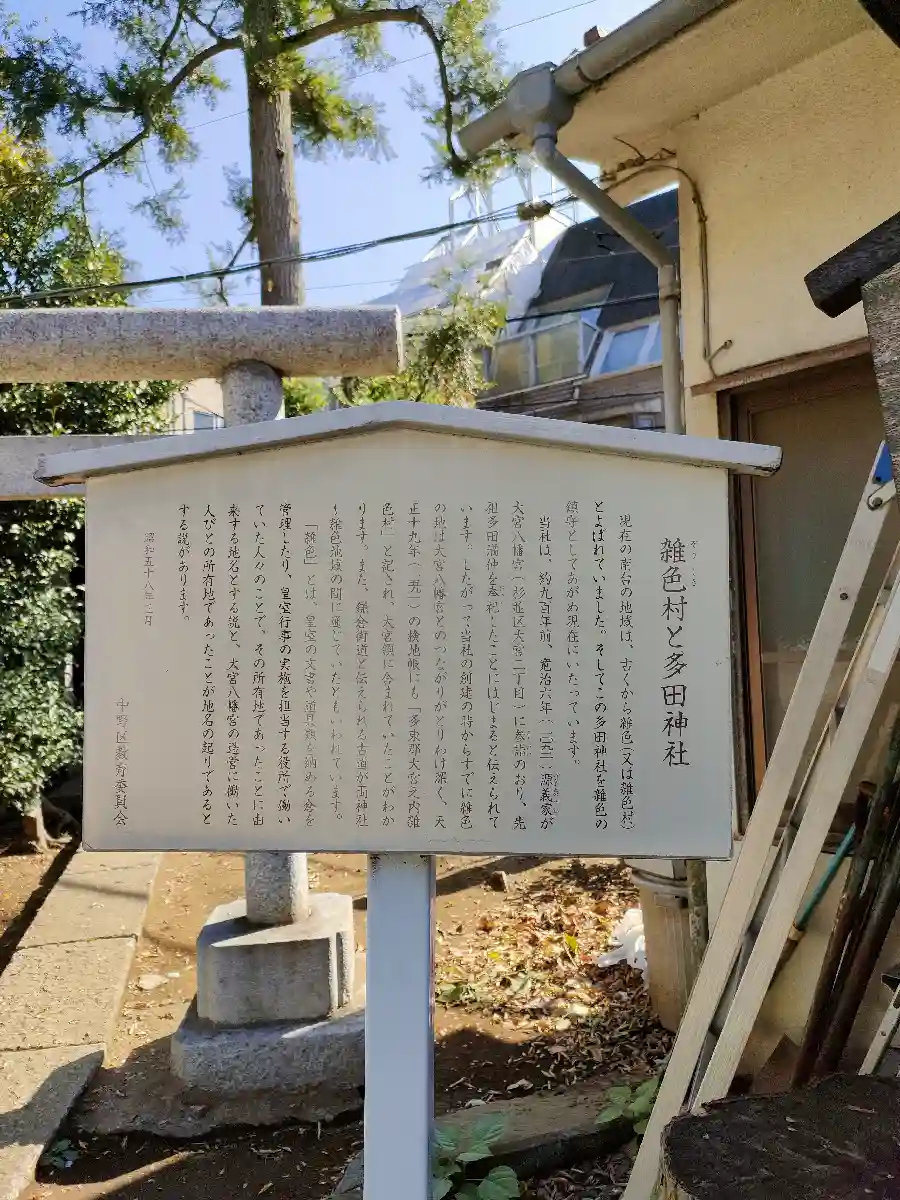 雑色村と多田神社
ぞうしき
現在の南台の地域は、古くから雑色(又は雑色村)
とよばれていました。そしてこの多田神社を雑色の
鎮守としてあがめ現在にいたっています。
当社は、約九百年前、寛治六年(一〇九二)源義家が
大宮八幡宮(杉並区大宮二丁目)に参詣のおり、先
祖多田満仲を奉祀したことにはじまると伝えられて
います。したがって当社の創建の時からすでに雑色
の地は大宮八幡宮とのつながりがとりわけ深く、天
正十九年(一五九一)の検地帳にも「多東郡大宮之内雑
色村」と記され、大宮領に含まれていたことがわか
ります。また、鎌倉街道と伝えられる古道が両神社
と雑色部域の間に通じていたともいわれています。
「雑色」とは、皇室の文書や道具類を納める倉を
管理したり、皇室行事の実施を担当する役所で働い
ていた人々のことで、その所有地であったことに由
来する地名とする説と、大宮八幡宮の造営に働いた
人びとの所有地であったことが地名の起りであると
する説があります。
昭和五十八年三月
中野区教育委員会